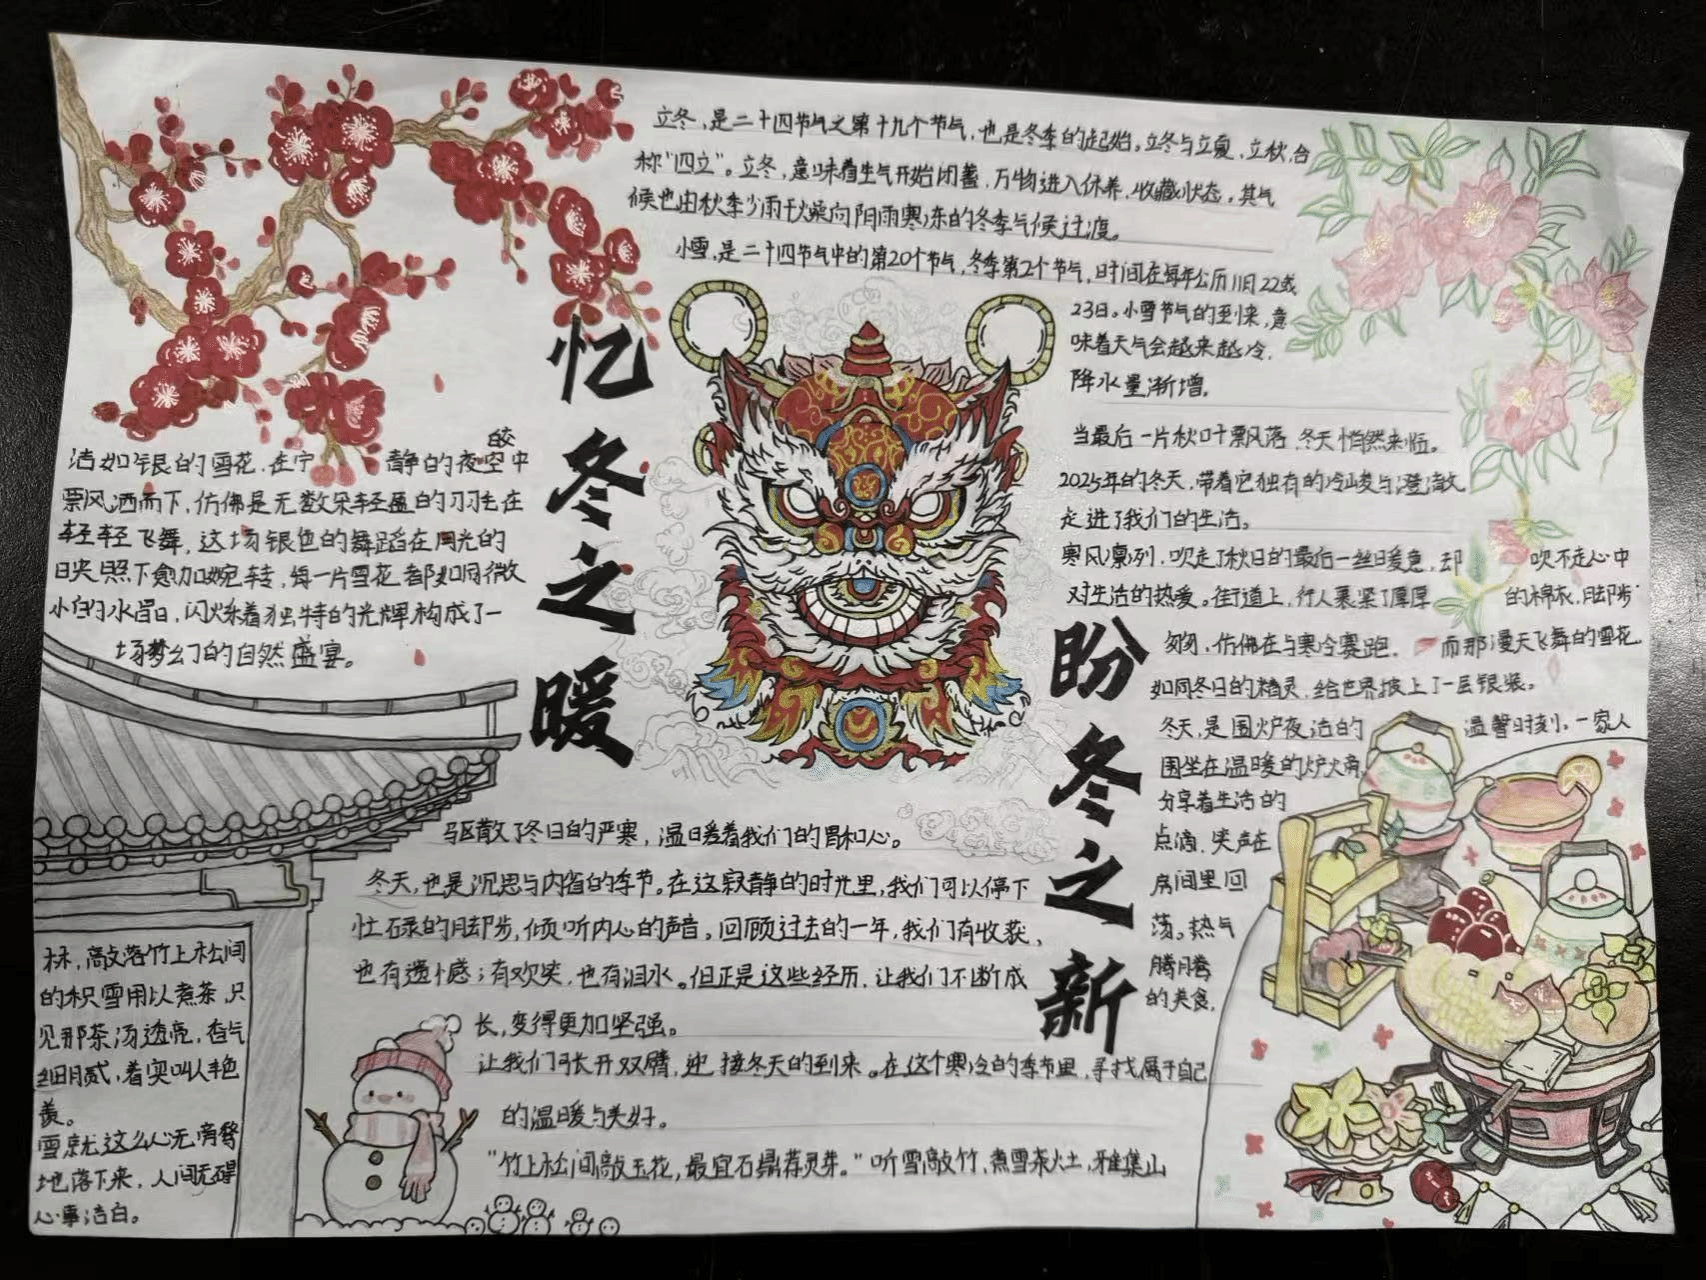 立冬，是二十四节气之第十九个节气，也是冬季的起始。立冬与立夏，立秋，合
称“四立”。立冬，意味着生气开始闭蓄，万物进入休养，收藏状态。其气
候也由秋季少雨干燥向阴雨寒冻的冬季气候过渡。
小雪，是二十四节气中的第20个节气，冬季第2个节气，时间在每年公历11月22或
23日。小雪节气的到来，意
味着天气会越来越冷，
降水量渐增。
忆冬之暖
盼冬之新
当最后一片秋叶飘落，冬天悄然来临。
2025年的冬天，带着它独有的冷峻与澄澈
走进了我们的生活。
寒风凛冽，吹走了秋日的最后一丝日暖意，却吹不走心中
对生活的热爱。街道上，行人裹紧了厚厚的棉衣，脚步
匆匆，仿佛在与寒冷赛跑。而那漫天飞舞的雪花，
如同冬日的精灵，给世界披上了一层银装。
冬天，是围炉夜话的温馨时刻，一家人
围坐在温暖的炉火旁
分享着生活的
点滴，笑声在
房间里回
荡。热气
腾腾
的美食，
驱散了冬日的严寒，温暖着我们的胃和心。
冬天，也是沉思与内省的季节。在这寂静的时光里，我们可以停下
忙碌的脚步，倾听内心的声音。回顾过去的一年，我们有收获，
也有遗憾；有欢笑，也有泪水。但正是这些经历，让我们不断成
长，变得更加坚强。
让我们张开双臂，迎接冬天的到来。在这个寒冷的季节里，寻找属于自己
的温暖与美好。
“竹上松间敲玉花，最宜石鼎荐灵芽。”听雪敲竹，煮雪茶火土，雅集山
林，敲落竹上松间
的积雪用以煮茶，只
见那茶汤透亮，香气
细腻，着实叫人艳
羡。
雪就这么心无旁骛
地落下来，人间无碍
心事洁白。
皎
洁如银的雪花，在宁静的夜空中
飘洒而下，仿佛是无数朵轻盈的羽毛在
轻轻飞舞，这场银色的舞蹈在月光的
映照下愈加婉转，每一片雪花都如同微
小的水晶，闪烁着独特的光辉构成了一
场梦幻的自然盛宴。